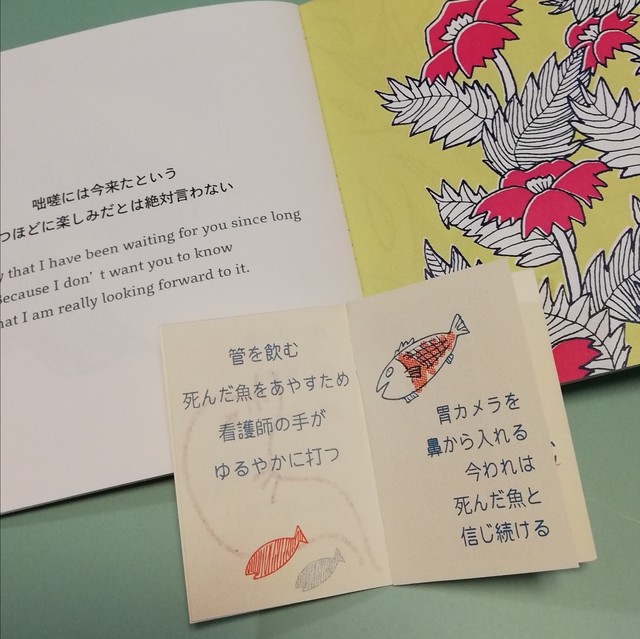 咄嗟には今来たという
つほどに楽しみだとは絶対言わない
that I have been waiting for you since long
Because I don't want you to know
that I am really looking forward to it.
管を飲む
死んだ魚をあやすため
看護師の手が
ゆるやかに打つ
胃カメラを
鼻から入れる
今われは
死んだ魚と
信じ続ける